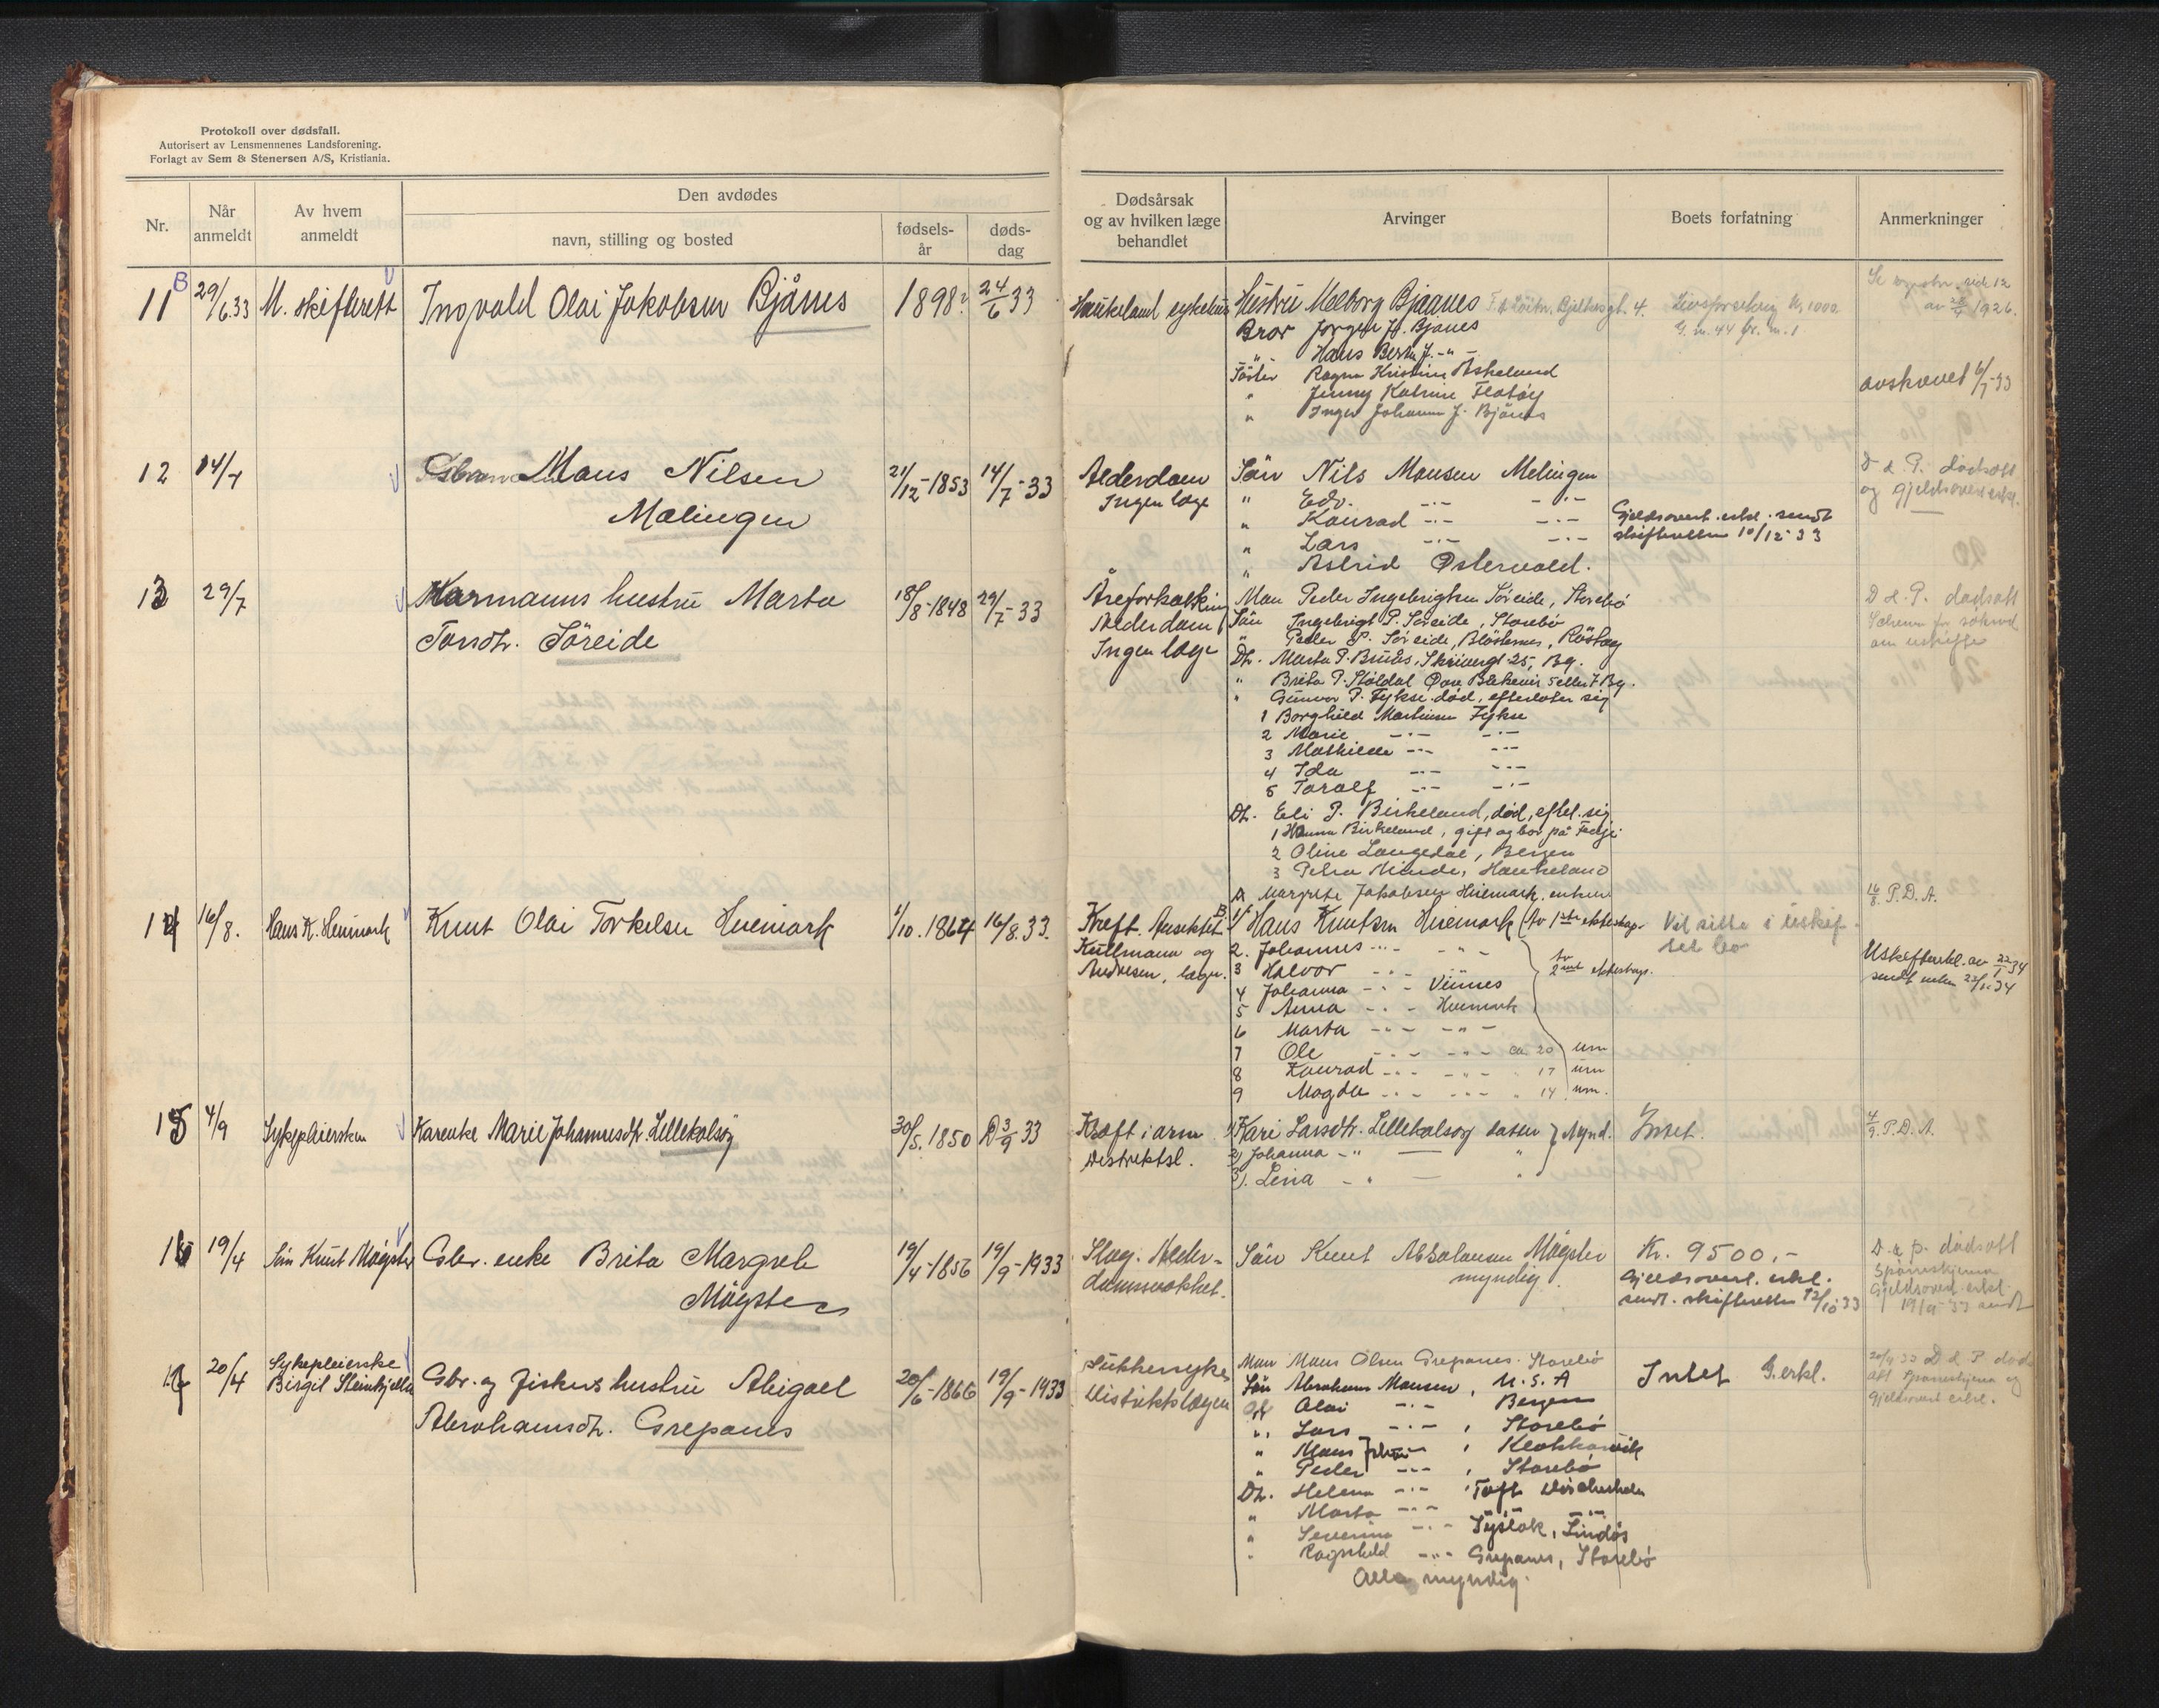 Protokoll over dødsfall.
Autorisert av Lensmennenes Landsforening.
Forlagt av Sem & Stenersen A/S, Kristiania.
Nr.
Når anmeldt
Av hvem anmeldt
Den avdødes
navn, stilling og bosted
fødsels-år
døds-dag
Dødsårsak og av hvilken læge behandlet
Arvinger
Boets forfatning
Anmerkninger
11 B 29/6.33 M. skifterett Ingvald Olai Jakobsen Bjånes 1898? 24/6 33 Haukeland sykehus Hustru Melborg Bjaanes
Livsforsikring kr. 1000
G. nr. 44 br. nr. 1
av 1926.
Bror Jørgen J. Bjånes
" Hans Bertin J. -"-
Søster Ragna Kristine Askeland
" Jenny Katrine Flatøy
" Inger Johanna J. Bjånes
avskrevet 6/7-33
12 14/7 Mans Nilsen
Mælingen
21/12-1853 14/7-33 Alderdom
Ingen læge
Sön Nils Monsen Melingen
" Edv. -.- -.-
" Konrad -.- -.-
" Lars -.- -.-
" Astrid Østervold.
Gjeldsovert. erkl. sendt
skifteretten 10/12-33
D. d. P. dødsatt
og gjeldsovert erkl.
13 29/7 Kårmanns hustru Marta
Torsdtr. Söreide
18/8-1848 29/7-33 Åreforkalkning
Alderdom
Ingen læge
Man Peder Ingebrigtsen Söreide, Storebö
Sön Ingebrigt P. Söreide, Storebö
" Peder P. Söreide, Röstøy
Dt. Marta P. Bruås, Skrivergt 25, Bg.
" Brita P. Støldal Øvre Blekevei 5 eller 7 Bg.
" Gunvor P. Fykse död, efterlater sig
1 Borghild Martinsen Fykse
2 Marie -.- -.-
3 Mathilde -.- -.-
4 Ida -.- -.-
5 Toralf -.- -.-
Dt. Eli P. Birkeland, död, efterl. sig
1 Hanna Birkeland, gift og bor på Fedje
2 Oline Langedal, Bergen
3 Petra Minde, Haukeland
D. d. P. dødsatt
14 16/8. Hans K. Huemark Knut Olai Torkelsen Huemark 1/10. 1864 16/8.33. Kreft. Ansiktet
Kullmann og
Andresen, læger.
A Margrete Jakobsen Huemark, enken
B. 1/ Hans Knutsen Huemark (Av 1ste ekteskap.
2. Johannes -.- -.-
3 Halvor -.- -.-
4 Johanna -.- Vinnes
5 Anna -.- Huemark
6 Marta -.- -.-
7 Ole -.- -.- ca. 20 um
8 Konrad -.- -.- " 17 um
9 Magda -.- -.- " 14 um.
Av 2net ekteskap.
Vil sitte i uskiftet bo
16/8 P.D.A.
Uskifteerkl. av 22/1 34
sendt enken 23/1.34
15 4/9 Sykepleiersken Karenke Marie Johannesdtr. Lillekalsøy 30/5. 1850 D 3/9 33 Kræft i arm
Distriktsl.
1) Kari Larsdtr. Lillekalsøy datter } Mynd.
2) Johanna -"- "
3). Lina -"- "
Intet.
4/9. P.D.A.
16 19/4 Sön Knut Møgster Gbr. enke Brita Margrete
Møgster
19/4-1856 19/9-1933 Slag. Alder-
domssvakhet.
Sön Knut Absalonsen Møgster
myndig.
Kr. 9500,-
Gjeldsovert. erkl.
sendt. skifteretten 12/10 33
D. d. p. dødsatt
Spørreskjema
Gjeldsovert. erkl.
19/9-33 sendt
17 20/4 Sykepleierske
Birgit Steinkjellen Gbr. og Fiskers hustru Abigael
Abrahamsdtr. Grepanes
20/6-1866 19/9-1933 Sukkersyke
Distriktslægen
Man Mons Olsen Grepanes. Storebö
Sön Abraham Monsen, U.S.A
" Olai -.- Bergen
" Lars -.- , Storebö
" Mons Johan , Klokkarvik
" Peder -.- , Storebö
Dt. Helena -.- , Toft
" Marta -.- -.-
" Severina -.- , Lindås
" Ragnhild -.- Grepanes, Storebö
Alle myndig.
Intet G.erkl.
20/9 33 D. d. P. døds
att Spørreskjema og
gjeldsovert erkl.